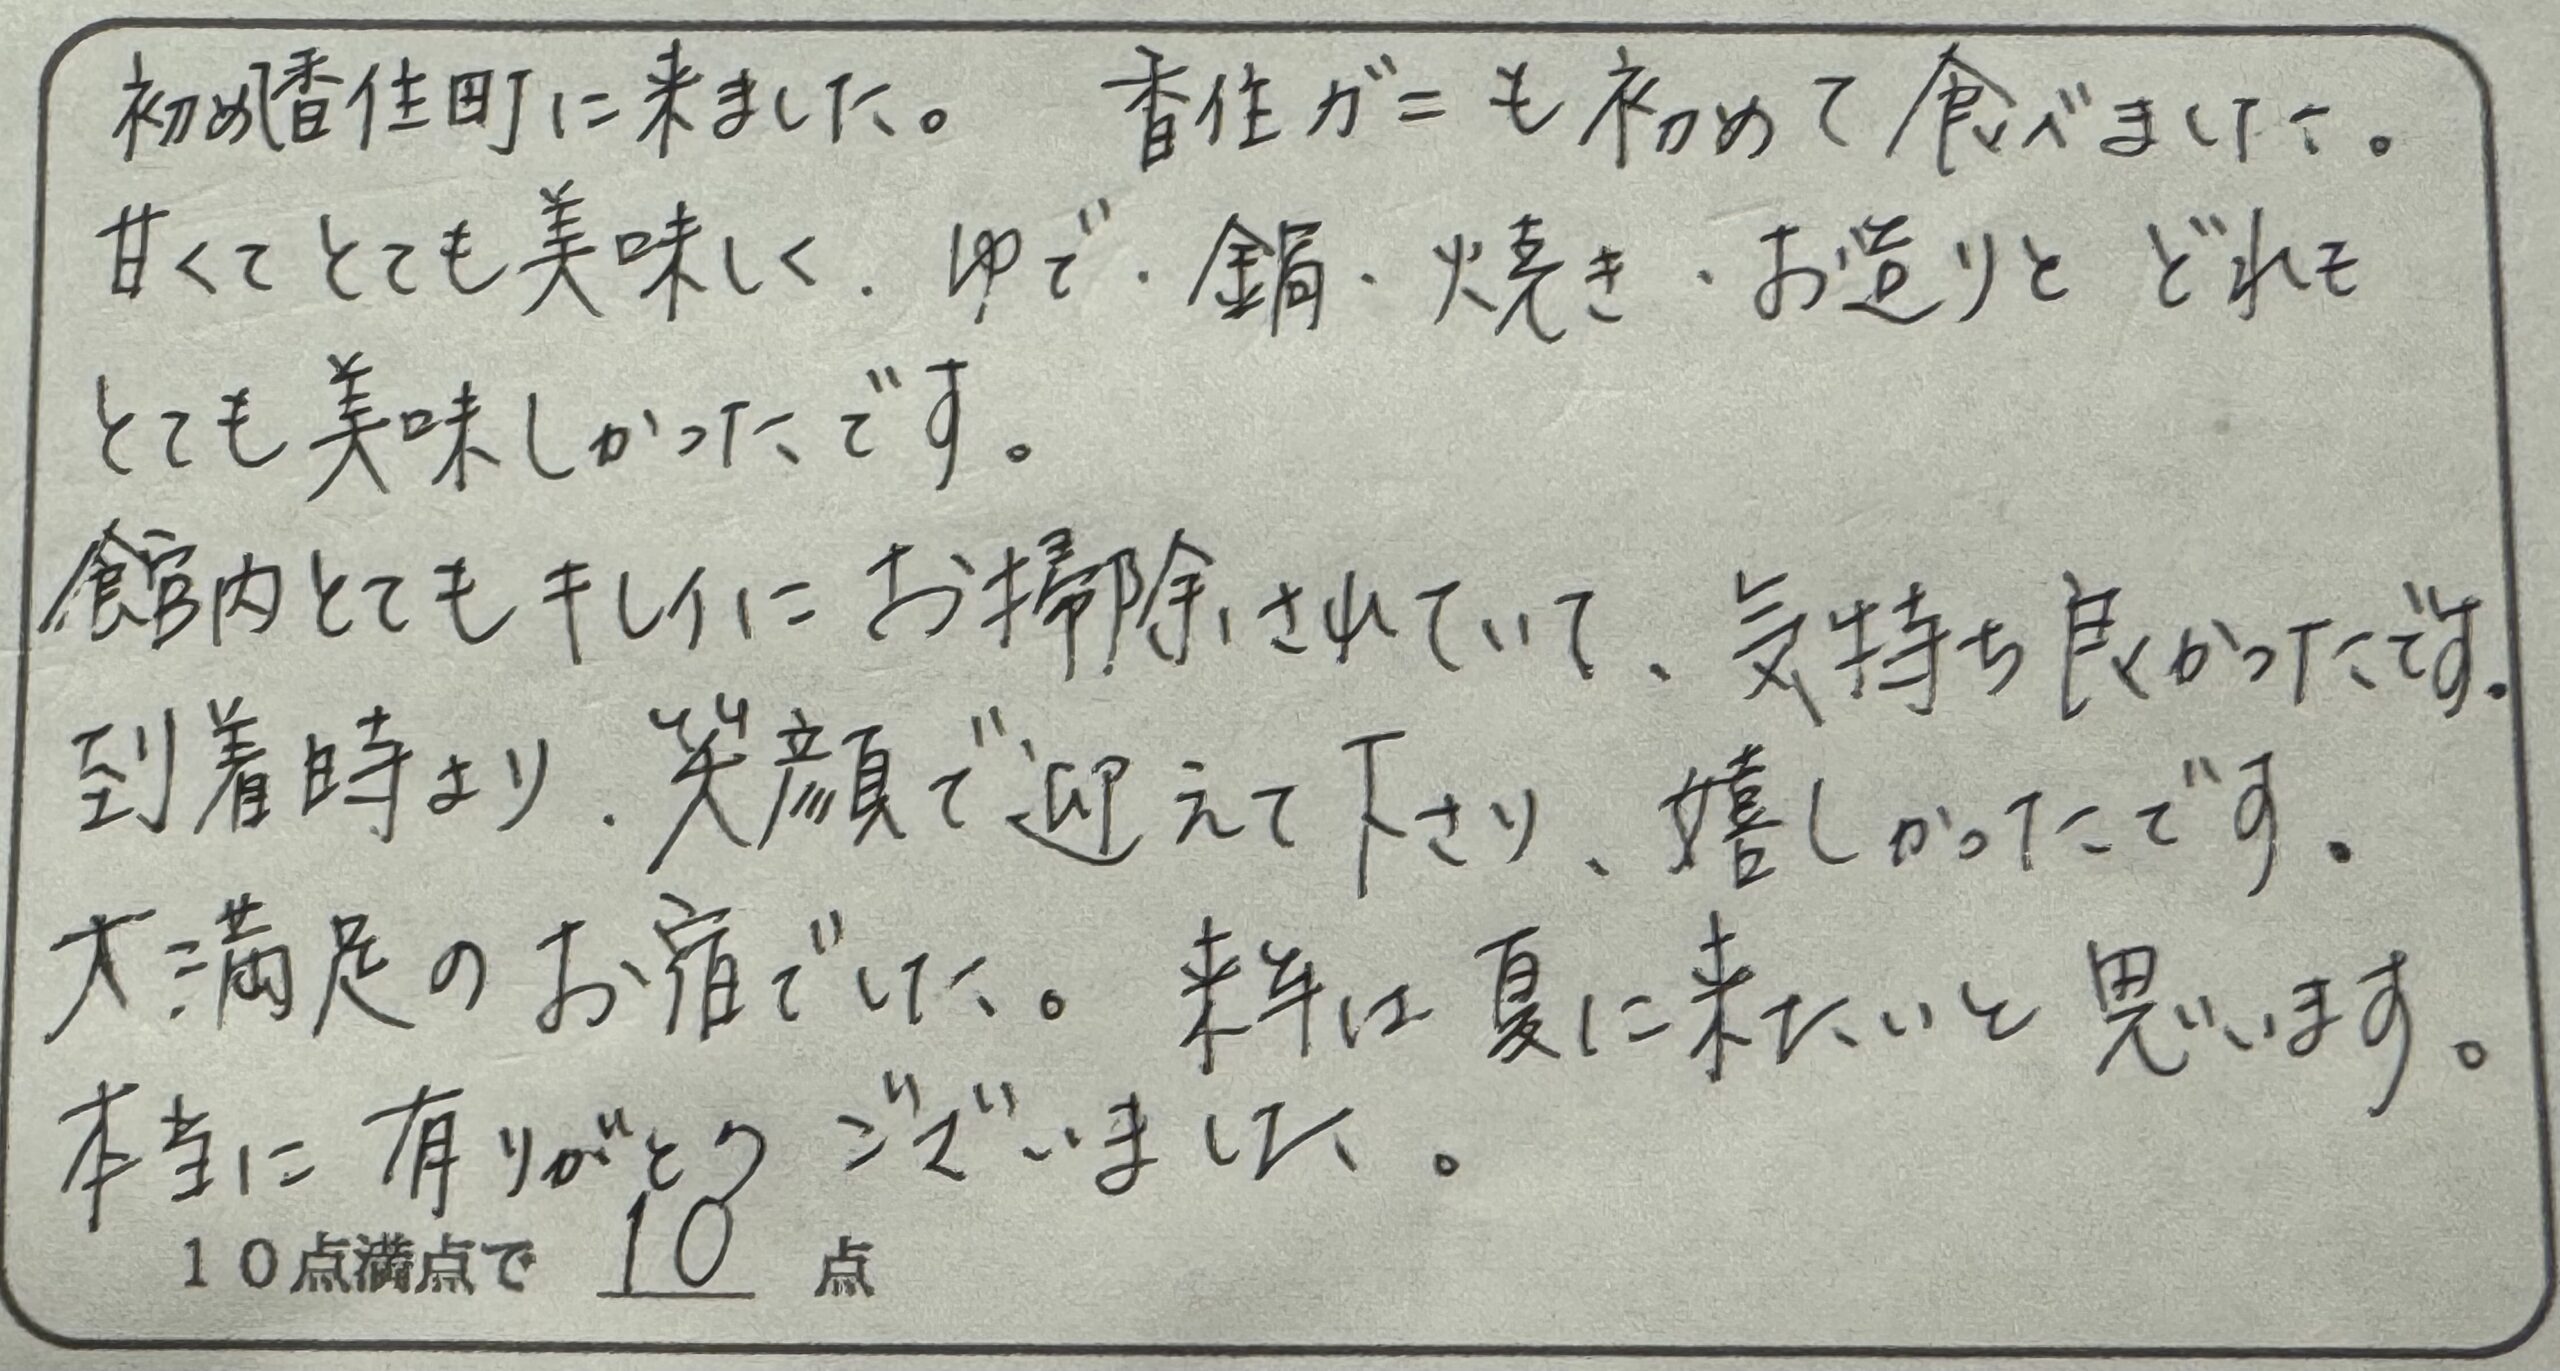 初めて香住町に来ました。 香住ガニも初めて食べました。
甘くてとても美味しく、ゆで・鍋・焼き・お造りと どれも
とても美味しかったです。
館内とてもキレイにお掃除されていて、気持ち良くかったです。
到着時より、笑顔で迎えて下さり、嬉しかったです。
大満足のお宿でした。 来年は夏に来たいと思います。
本当に有りがとうございました。
10点満点で 10 点